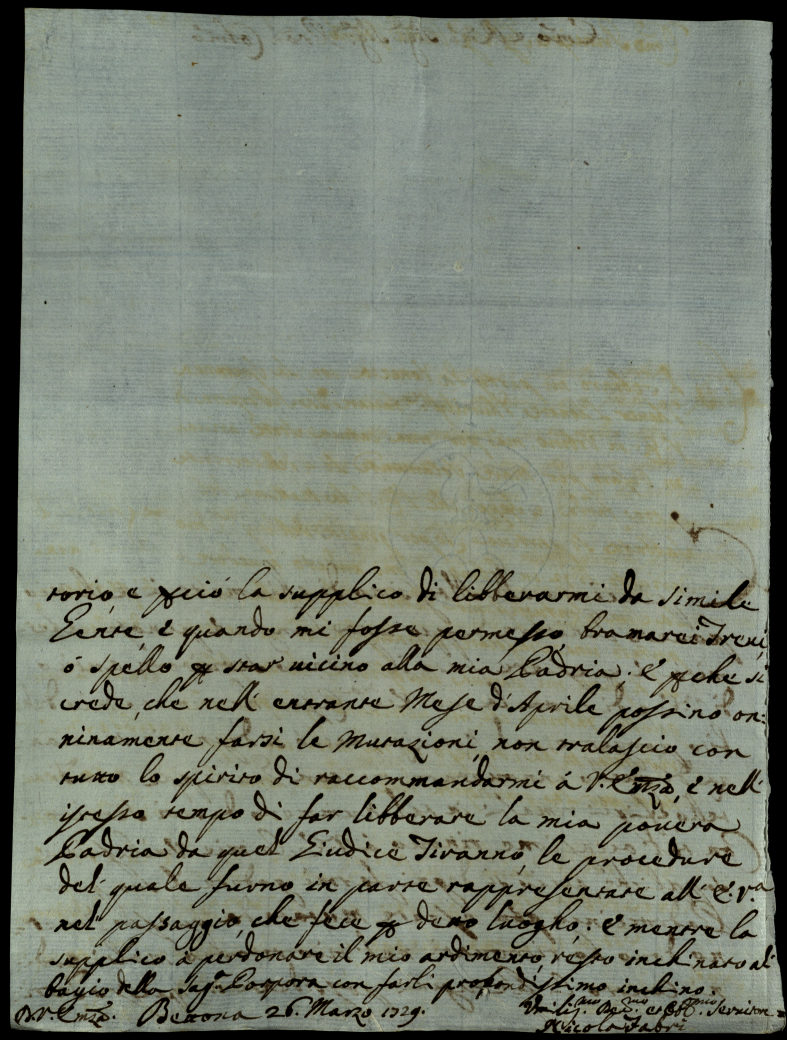 torio, e p(er)ciò la supplico di libberarmi da simile
Gente, e quando mi fosse permesso, bramarei Trevi,
ò spello p(er) star vicino alla mia Padria: e p(er)che si
crede, che nell' entrante Mese d'Aprile possino on:
ninamente farsi le mutazioni, non tralascio con
tutto lo spirito di raccommandarmi á V. Emza, e nell'
istesso tempo di far libberare la mia povera
Padria da quel Giudice Tiranno, le procedure
del quale furno in parte rappresentate all' E.V.ra
nel passaggio, che fece p(er) detto luogho: e mentre la
supplico à perdonare il mio ardimento resto inchinato al
bagio della Sag.ra Porpora con farli profondissimo inchino.
D. V. Emza. Bettona 26. Marzo 1729.
Umilis.mo Dev.mo et Obb.mo Servitore
Nicola Fabri